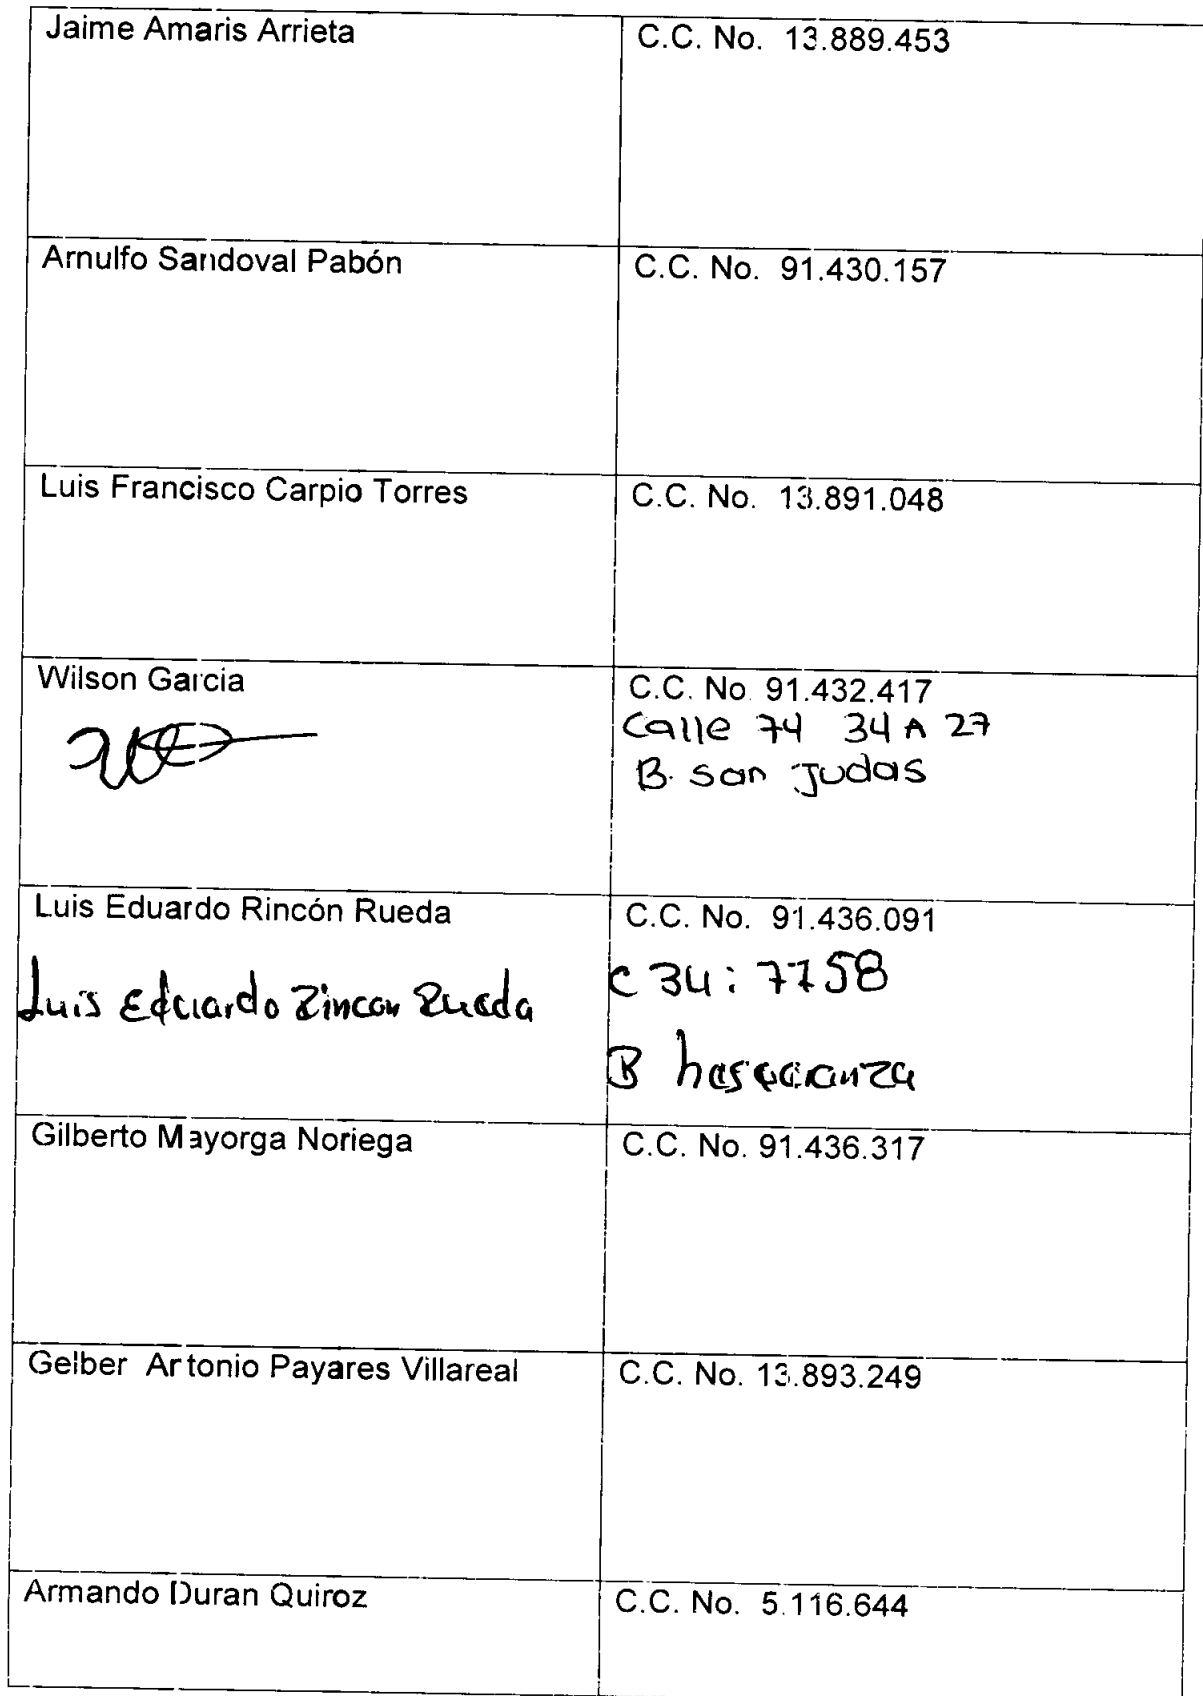 Jaime Amaris Arrieta
C.C. No. 13.889.453
Arnulfo Sandoval Pabón
C.C. No. 91.430.157
Luis Francisco Carpio Torres
C.C. No. 13.891.048
Wilson Garcia
C.C. No. 91.432.417
Calle 74 34 A 27
B. San Judas
Luis Eduardo Rincón Rueda
C.C. No. 91.436.091
Luis Eduardo Rincon Rueda
C 34: 7758
B
Gilberto Mayorga Noriega
C.C. No. 91.436.317
Gelber Antonio Payares Villareal
C.C. No. 13.893.249
Armando Duran Quiroz
C.C. No. 5.116.644